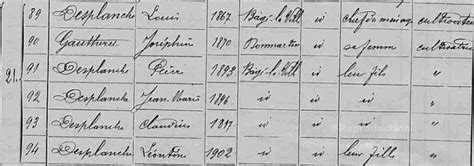 89 Desplanche Louis 1867 Bâgé-la-Ville id chef de ménage cultivateur
90 Joséphine 1870 id sa femme cultivatrice
21. 91 Desplanche 1893 Bâgé-la-Ville id leur fils "
92 Desplanche Jean Marie 1896 id id id "
93 Desplanche Claudius 1899 id id id "
94 Desplanche Léontine 1902 id id leur fille "